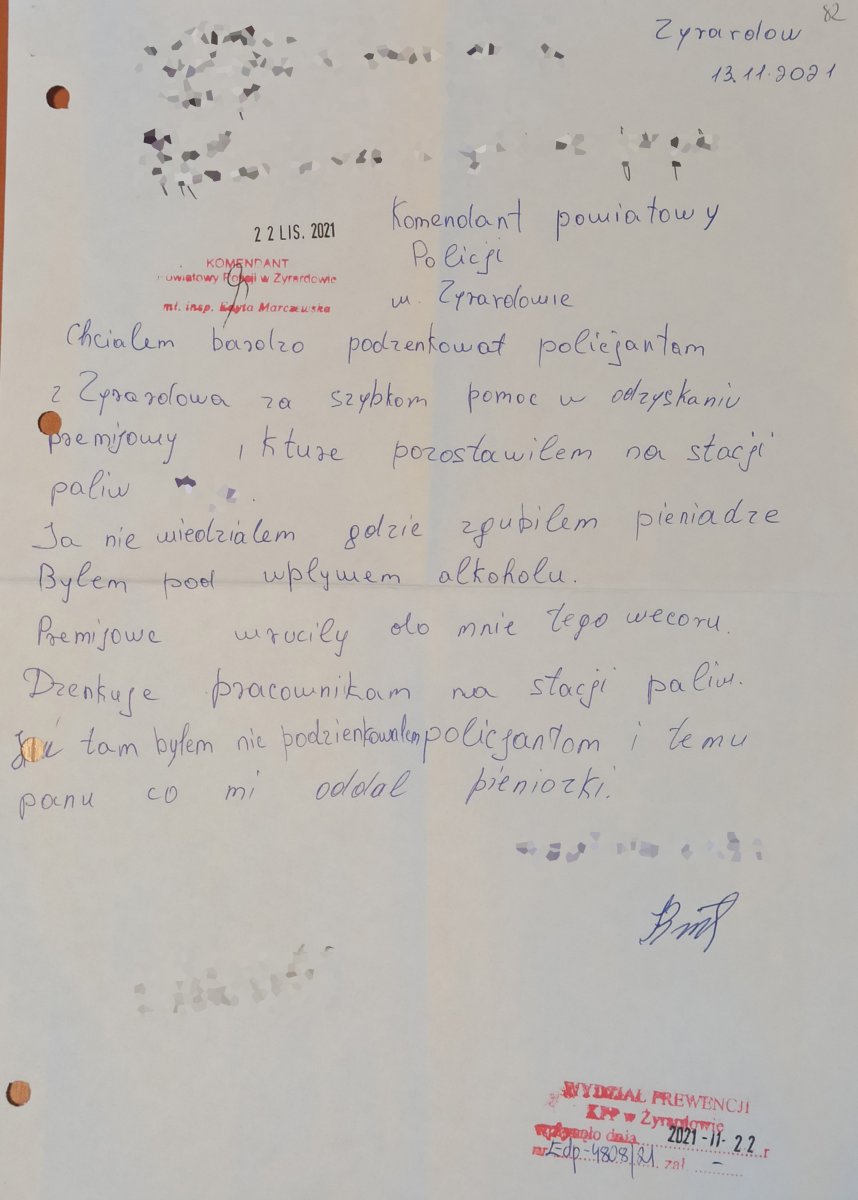 82
Zyrardow
13.11.2021
22 LIS. 2021
KOMENDANT
Powiatowy Policji w Żyrardowie
mł. insp. Edyta Marczewska
Komendant powiatowy
Policji
w. Zyrardowie
Chcialem bardzo podzenkowat policjantam
z Zyrardowa za szybkom pomoc w odzyskaniu
premijowy , kture pozostawilem na stacji
paliw .
Ja nie wiedzialem gdzie zgubilem pieniadze
Bylem pod wplywem alkoholu.
Premijowe wrucily do mnie tego wecoru.
Dzenkuje pracownikam na stacji paliw.
tam byłem nie podzienkowalem policjantom i temu
panu co mi oddal pieniozki.
WYDZIAŁ PREWENCJI
KPP w Żyrardowie
wpłynęło dnia 2021-11-22 r
nr Edp-4808/21 zał. –